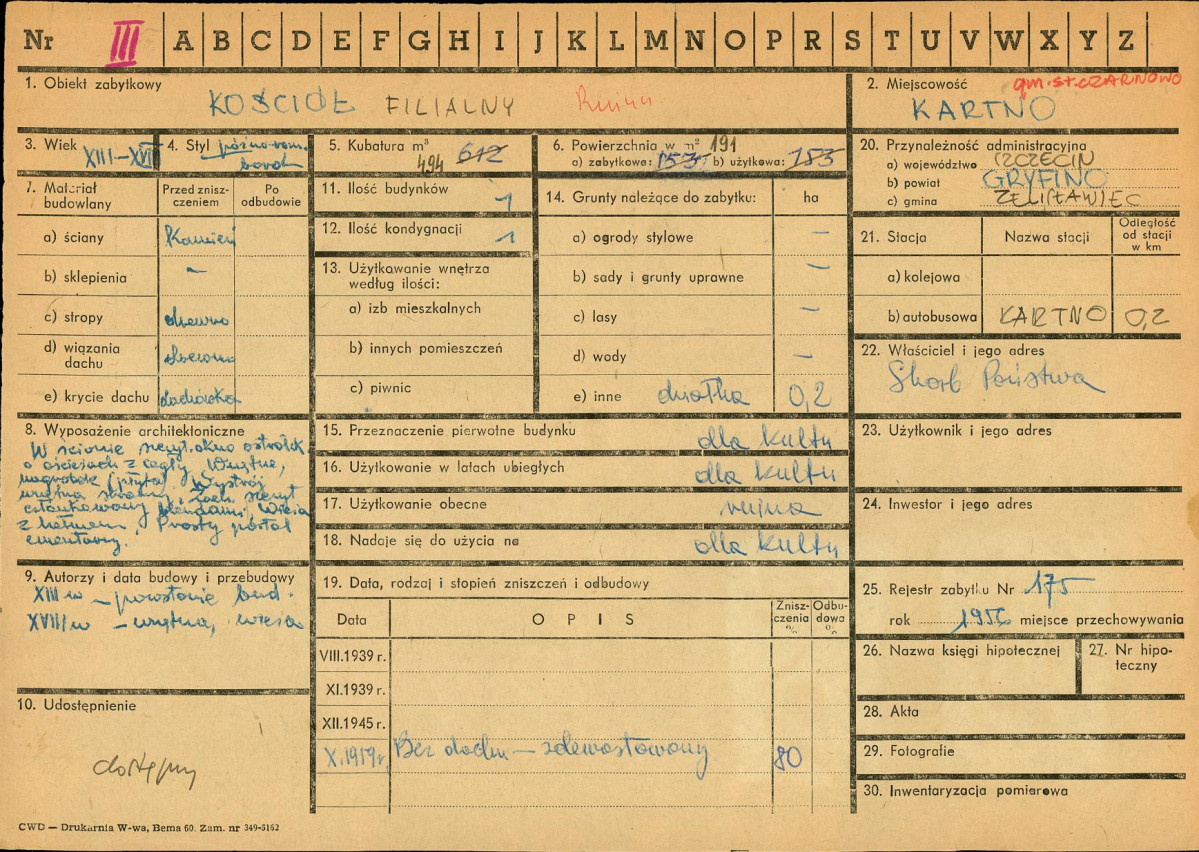 Nr III A B C D E F G H I J K L M N O P R S T U V W X Y Z
1. Obiekt zabytkowy
KOŚCIÓŁ FILIALNY Ruina
2. Miejscowość gm. st. CZARNOWO
KARTNO
3. Wiek
XIII–XVII
4. Styl późno-rom.
barok
5. Kubatura m³
494 612
6. Powierzchnia w m² 191
a) zabytkowa: 153, b) użytkowa: 153
7. Materiał budowlany
Przed zniszczeniem
Po odbudowie
a) ściany Kamień
b) sklepienia –
c) stropy drewno
d) wiązania dachu drewno
e) krycie dachu dachówka
8. Wyposażenie architektoniczne
W ścianie szczyt. okno ostrołuk
o ościeżach z cegły. Wnętrze,
nagrobek (płyta). Wystrój
Wieża
z hełmem. Prosty portal
cmentarny.
9. Autorzy i data budowy i przebudowy
XIII w – powstanie bud.
XVIII w – wnętrze, wieża
10. Udostępnienie
dostępny
11. Ilość budynków 1
12. Ilość kondygnacji 1
13. Użytkowanie wnętrza
według ilości:
a) izb mieszkalnych
b) innych pomieszczeń
c) piwnic
14. Grunty należące do zabytku: ha
a) ogrody stylowe –
b) sady i grunty uprawne –
c) lasy –
d) wody –
e) inne działka 0,2
15. Przeznaczenie pierwotne budynku dla kultu
16. Użytkowanie w latach ubiegłych dla kultu
17. Użytkowanie obecne ruina
18. Nadaje się do użycia na dla kultu
19. Data, rodzaj i stopień zniszczeń i odbudowy
Data OPIS Zniszczenia % Odbudowa %
VIII.1939 r.
XI.1939 r.
XII.1945 r.
X.1959 r. Bez dachu – zdewastowany 80
20. Przynależność administracyjna
a) województwo SZCZECIN
b) powiat GRYFINO
c) gmina ŻELISŁAWIEC
21. Stacja Nazwa stacji Odległość od stacji w km
a) kolejowa
b) autobusowa KARTNO 0,2
22. Właściciel i jego adres
Skarb Państwa
23. Użytkownik i jego adres
24. Inwestor i jego adres
25. Rejestr zabytku Nr 175
rok 1956 miejsce przechowywania
26. Nazwa księgi hipotecznej
27. Nr hipoteczny
28. Akta
29. Fotografie
30. Inwentaryzacja pomiarowa
CWD — Drukarnia W-wa, Bema 60. Zam. nr 349-5162